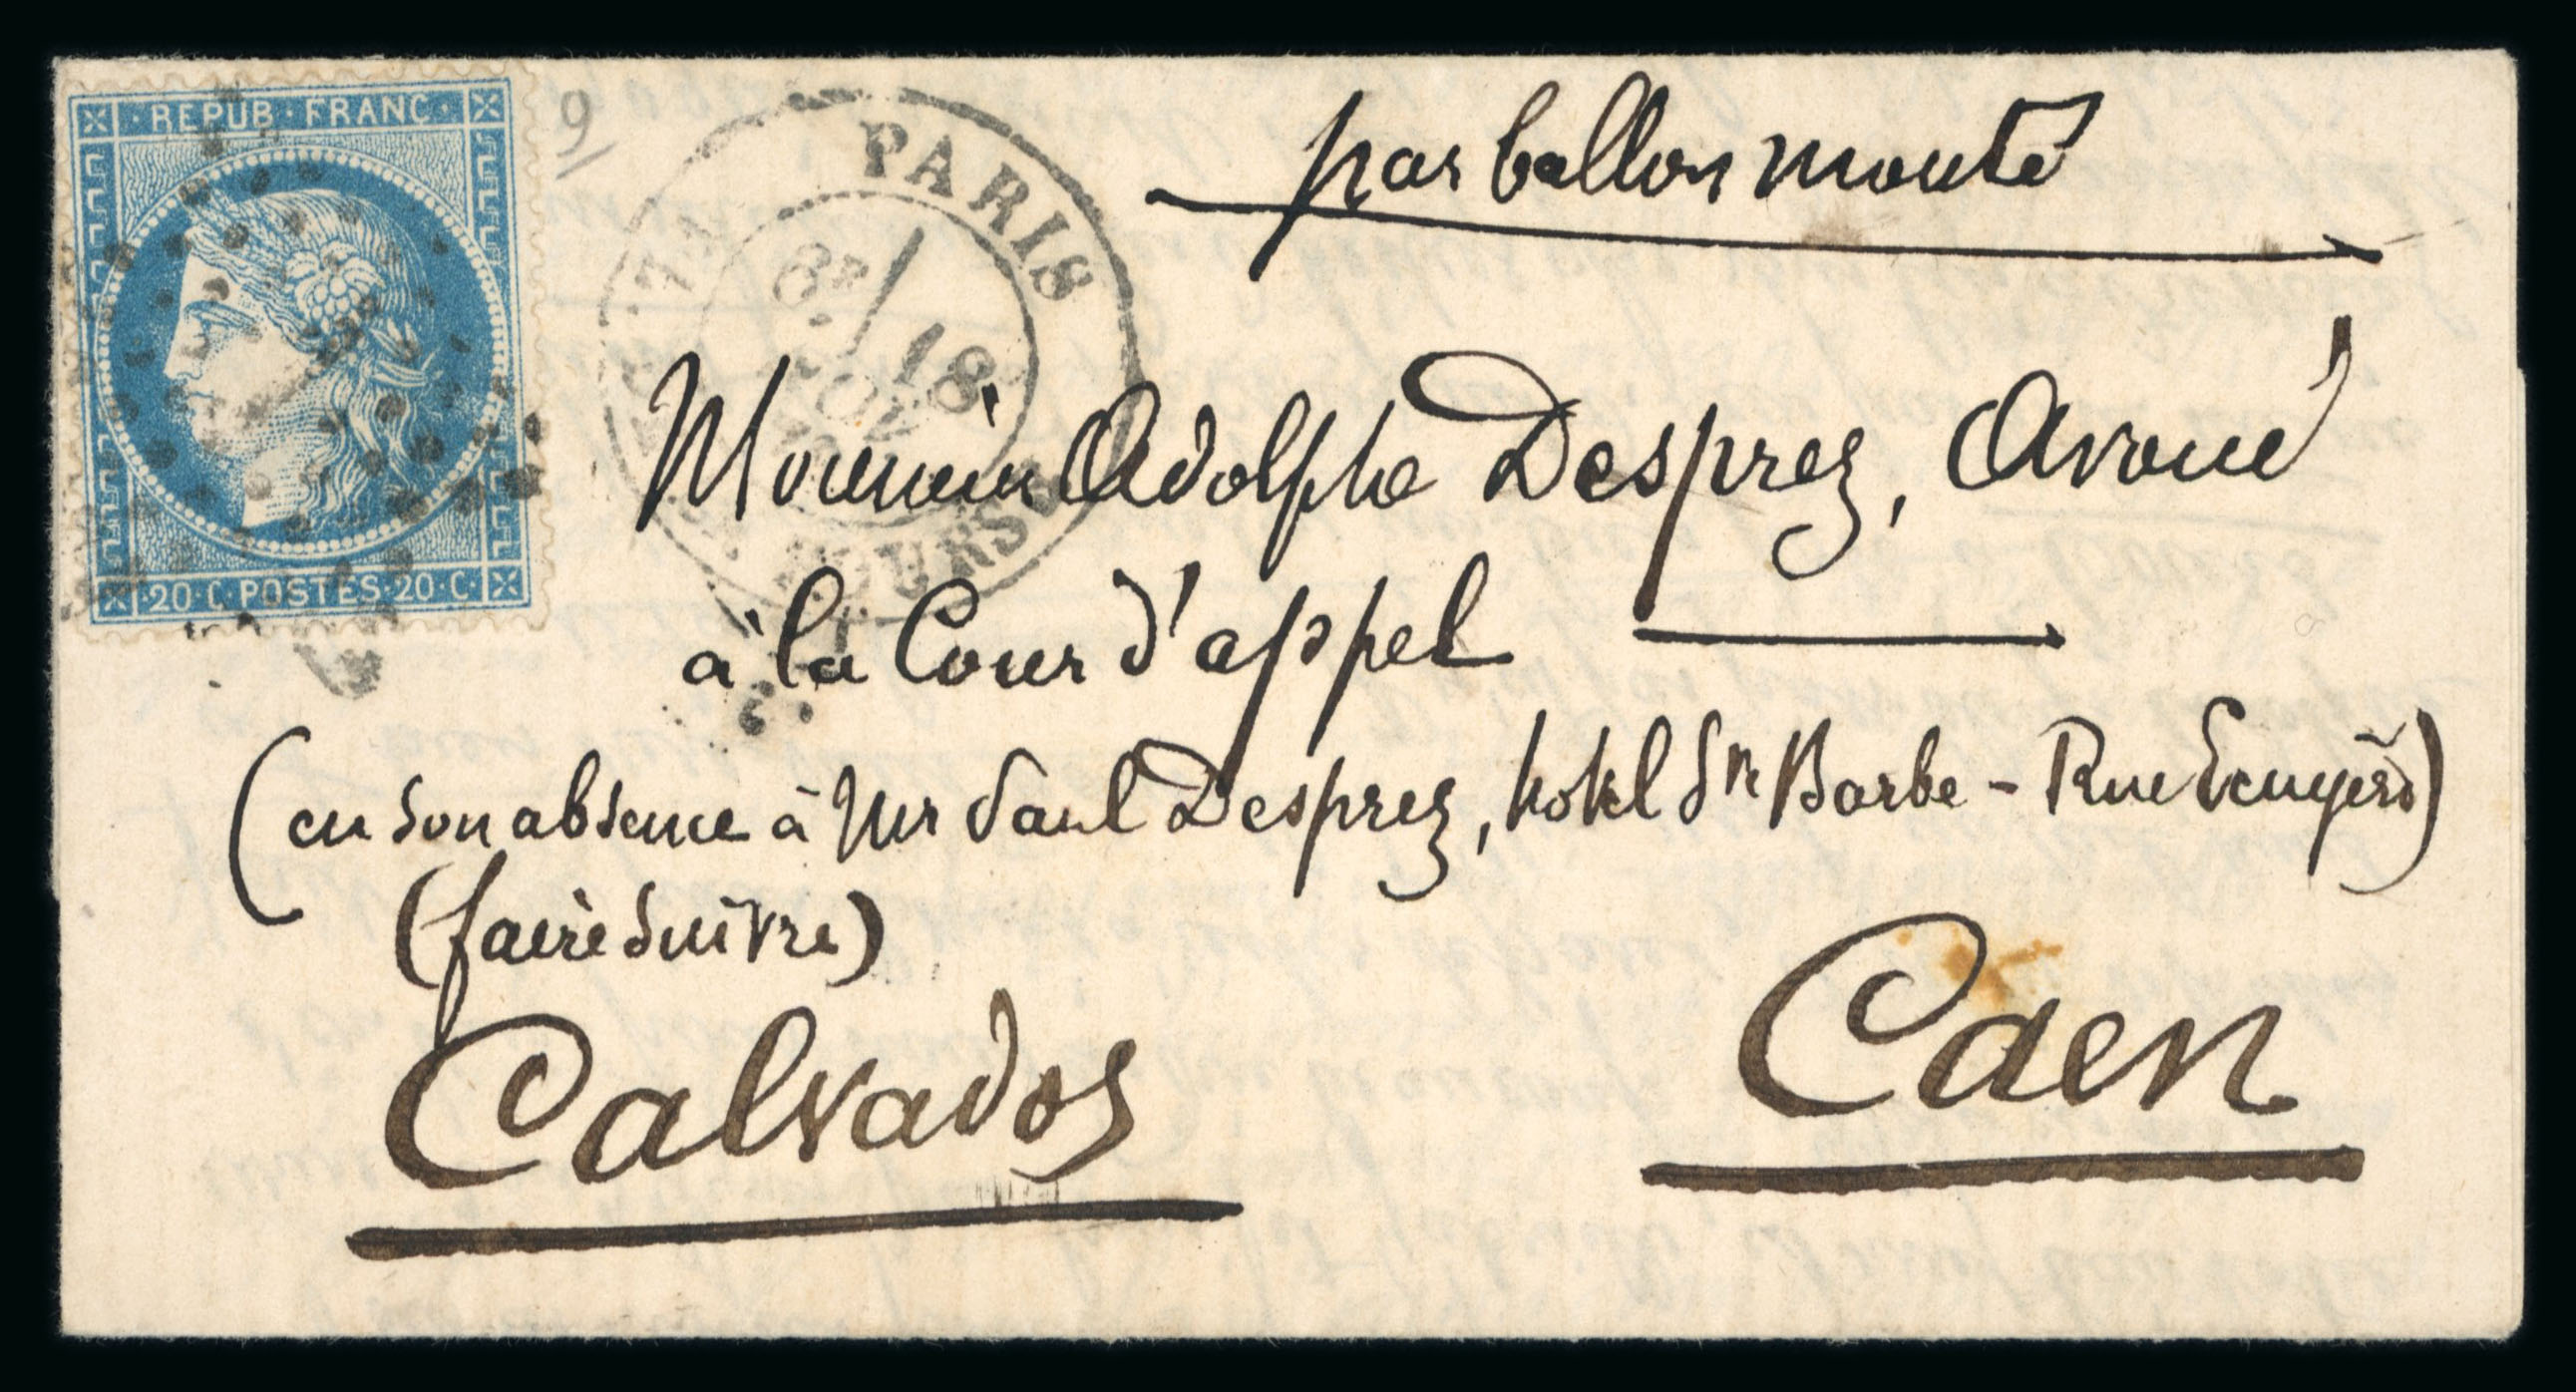 REPUB · FRANC ·
20 · C · POSTES · 20 · C ·
9
PARIS
6E / 18
NOV
BOURSE
par ballon monté
Monsieur Adolphe Desprez, Avoué
à la Cour d'appel
(en son absence à Mr Paul Desprez, hotel Ste Barbe - Rue Ecuyère)
(faire suivre)
Calvados
Caen